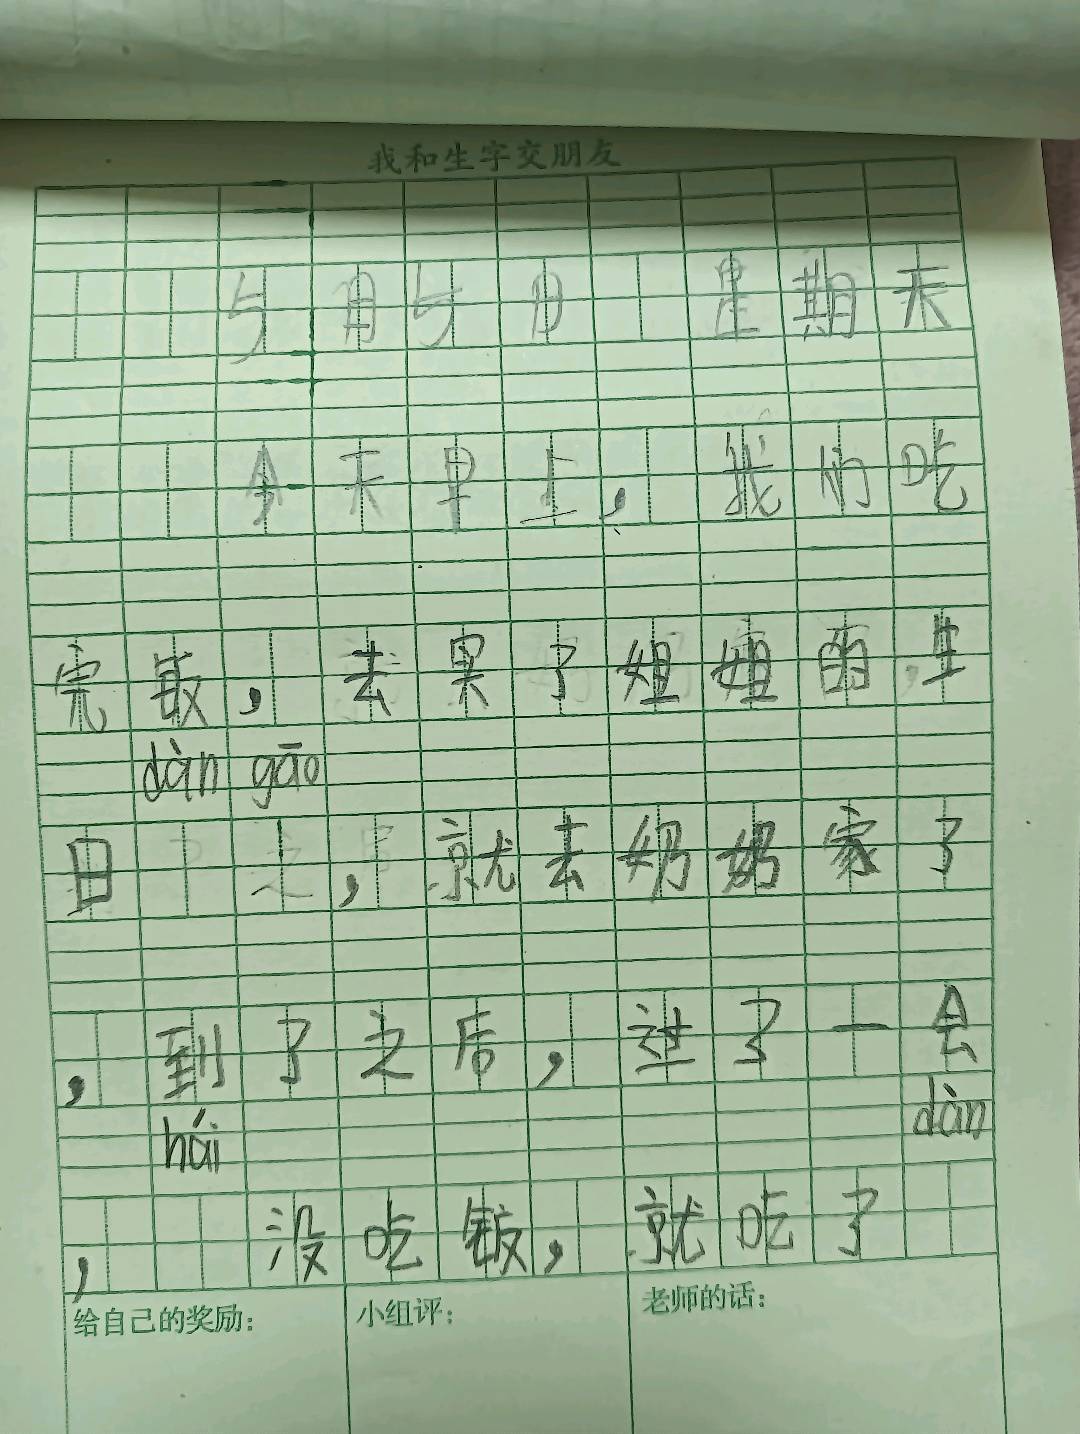 我和生字交朋友
5月5日 星期天
今天早上，我们吃
完敢，去果了姐姐的生
dàn gāo
日，就去奶奶家了
，到了之后，过了一会
hái dàn
，没吃饭，就吃了
给自己的奖励： 小组评： 老师的话：